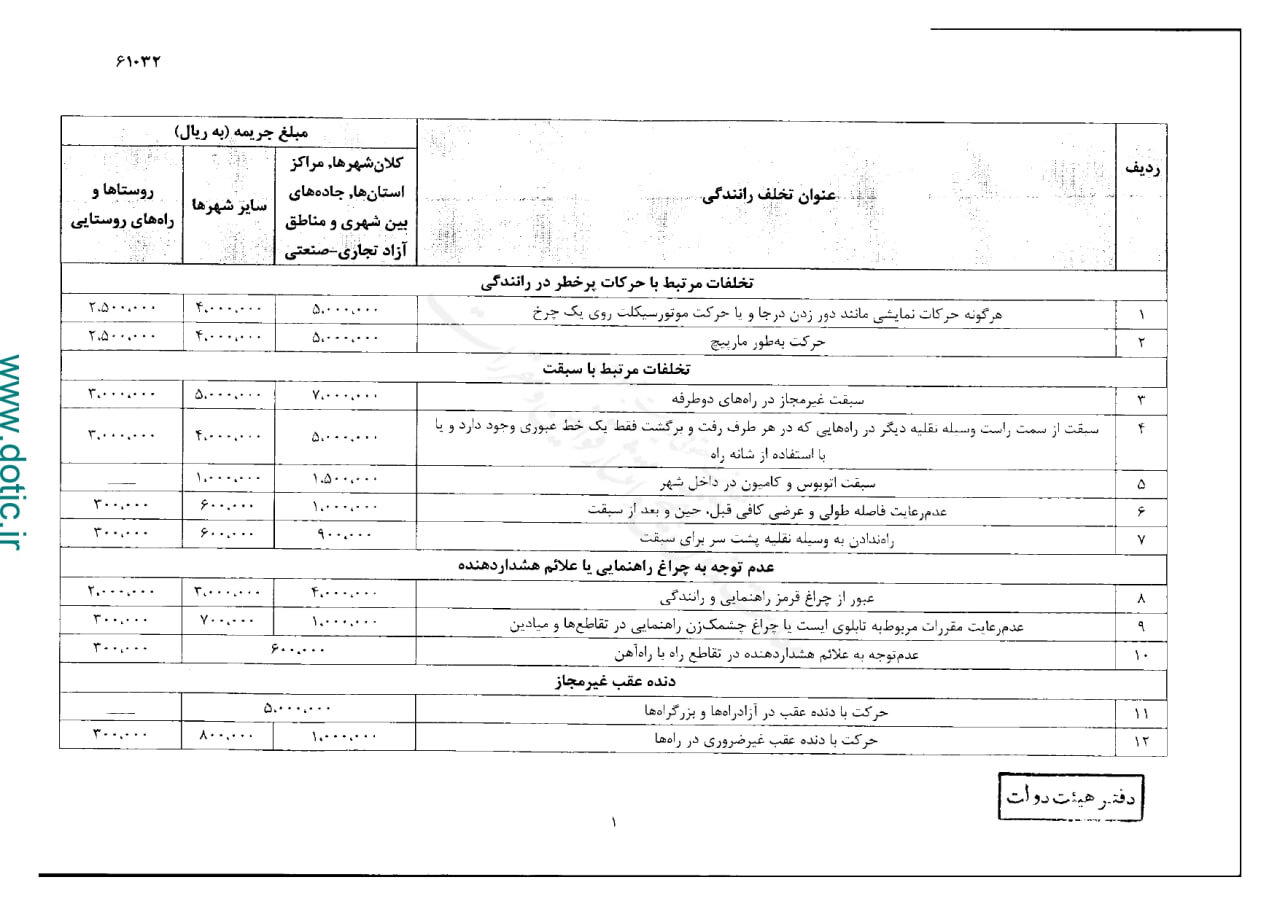 ۶۱۰۳۲
ردیف
عنوان تخلف رانندگی
مبلغ جریمه (به ریال)
کلان‌شهرها، مراکز
استان‌ها، جاده‌های
بین شهری و مناطق
آزاد تجاری-صنعتی
سایر شهرها
روستاها و
راه‌های روستایی
تخلفات مرتبط با حرکات پرخطر در رانندگی
۱ هرگونه حرکات نمایشی مانند دور زدن درجا و یا حرکت موتورسیکلت روی یک چرخ ۵،۰۰۰،۰۰۰ ۴،۰۰۰،۰۰۰ ۲،۵۰۰،۰۰۰
۲ حرکت به‌طور مارپیچ ۵،۰۰۰،۰۰۰ ۴،۰۰۰،۰۰۰ ۲،۵۰۰،۰۰۰
تخلفات مرتبط با سبقت
۳ سبقت غیرمجاز در راه‌های دوطرفه ۷،۰۰۰،۰۰۰ ۵،۰۰۰،۰۰۰ ۳،۰۰۰،۰۰۰
۴ سبقت از سمت راست وسیله نقلیه دیگر در راه‌هایی که در هر طرف رفت و برگشت فقط یک خط عبوری وجود دارد و یا
با استفاده از شانه راه ۵،۰۰۰،۰۰۰ ۴،۰۰۰،۰۰۰ ۳،۰۰۰،۰۰۰
۵ سبقت اتوبوس و کامیون در داخل شهر ۱،۵۰۰،۰۰۰ ۱،۰۰۰،۰۰۰ ___
۶ عدم‌رعایت فاصله طولی و عرضی کافی قبل، حین و بعد از سبقت ۱،۰۰۰،۰۰۰ ۶۰۰،۰۰۰ ۳۰۰،۰۰۰
۷ راه‌ندادن به وسیله نقلیه پشت سر برای سبقت ۹۰۰،۰۰۰ ۶۰۰،۰۰۰ ۳۰۰،۰۰۰
عدم توجه به چراغ راهنمایی یا علائم هشداردهنده
۸ عبور از چراغ قرمز راهنمایی و رانندگی ۴،۰۰۰،۰۰۰ ۳،۰۰۰،۰۰۰ ۲،۰۰۰،۰۰۰
۹ عدم‌رعایت مقررات مربوط‌به تابلوی ایست یا چراغ چشمک‌زن راهنمایی در تقاطع‌ها و میادین ۱،۰۰۰،۰۰۰ ۷۰۰،۰۰۰ ۳۰۰،۰۰۰
۱۰ عدم‌توجه به علائم هشداردهنده در تقاطع راه با راه‌آهن ۶۰۰،۰۰۰ ۳۰۰،۰۰۰
دنده عقب غیرمجاز
۱۱ حرکت با دنده عقب در آزادراه‌ها و بزرگراه‌ها ۵،۰۰۰،۰۰۰ ___
۱۲ حرکت با دنده عقب غیرضروری در راه‌ها ۱،۰۰۰،۰۰۰ ۸۰۰،۰۰۰ ۳۰۰،۰۰۰
دفتر هیئت دولت
۱
www.dotic.ir